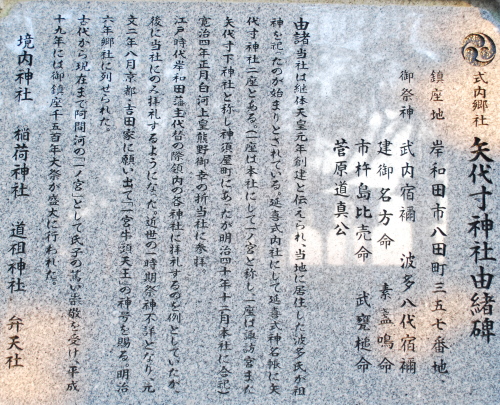 式内郷社 矢代寸神社由緒碑
鎮座地 岸和田市八田町三五七番地
御祭神 武内宿禰 波多八代宿禰
建御名方命 素盞嗚命
市杵島比売命 武甕槌命
菅原道真公
由諸 当社は継体天皇元年創建と伝えられ、当地に居住した波多氏が祖
神を祀たのが始まりとされている。延喜式内社にして延喜式神名帳に矢
代寸神社二座とある。（一座は本社にして一ノ宮と称し、一座は諏訪宮また
矢代寸下神社と称し神須屋町にあったが明治四十年十二月本社に合祀）
寛治四年正月白河上皇熊野御幸の折当社に参拝
江戸時代岸和田藩主代替の際領内の各神社に拝礼するのを例としていたが、
後に当社にのみ拝礼するようになった。近世の一時期祭神不詳となり、元
文二年八月京都・吉田家に願い出て「一宮牛頭天王」の神号を賜る。明治
六年郷社に列せられた。
古代から現在まで阿間河の「一ノ宮」として氏子の篤い崇敬を受け、平成
十九年には御鎮座千五百年大祭が盛大に行われた。
境内神社 稲荷神社 道祖神社 弁天社